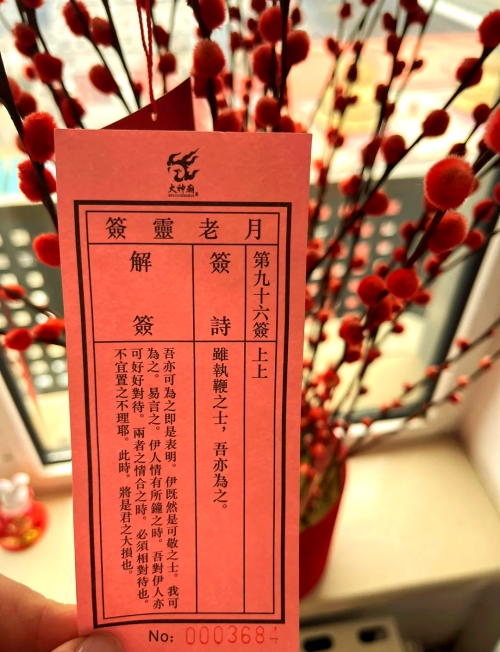 火神廟
月老靈簽
第九十六簽 上上
簽詩
雖執鞭之士，吾亦為之。
解簽
吾亦可為之即是表明。伊既然是可敬之士。我可
為之。易言之。伊人情有所鐘之時。吾對伊人亦
可好好對待。兩者之情合之時。必須相對待也。
不宜置之不理耶。此時。將是君之大損也。
No: 0003684